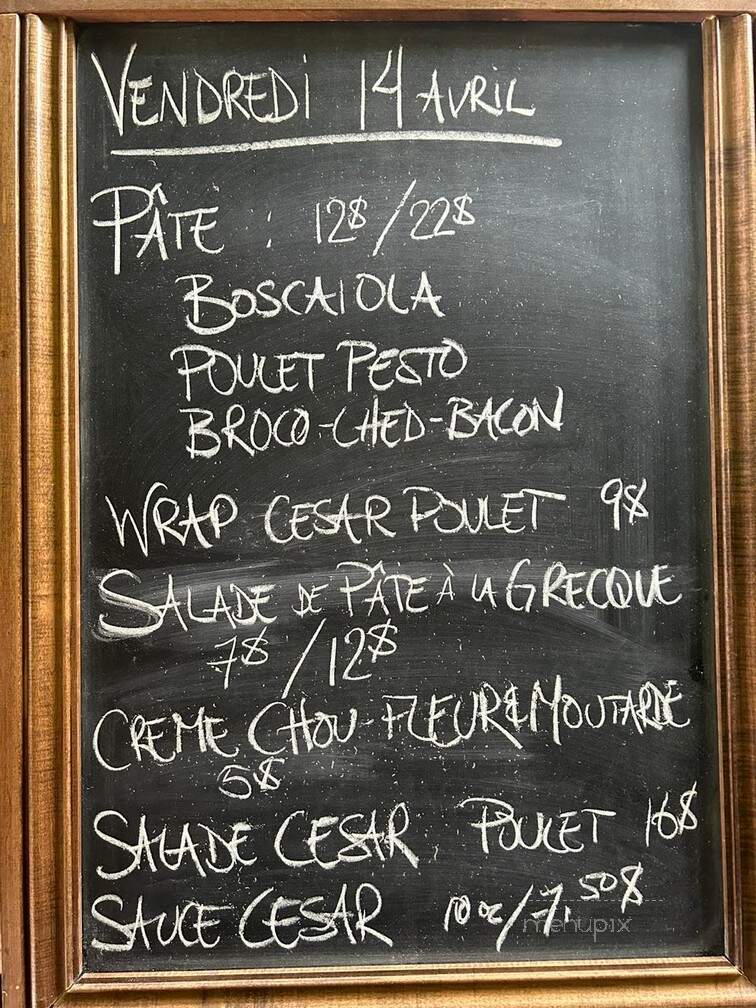 VENDREDI 14 AVRIL
PÂTE : 12$ / 22$
BOSCAIOLA
POULET PESTO
BROCO-CHED-BACON
WRAP CESAR POULET 9$
SALADE DE PÂTE À LA GRECQUE
7$ / 12$
CREME CHOU-FLEUR & MOUTARDE
5$
SALADE CESAR POULET 16$
SAUCE CESAR 10 oz / 7.50$
menupix